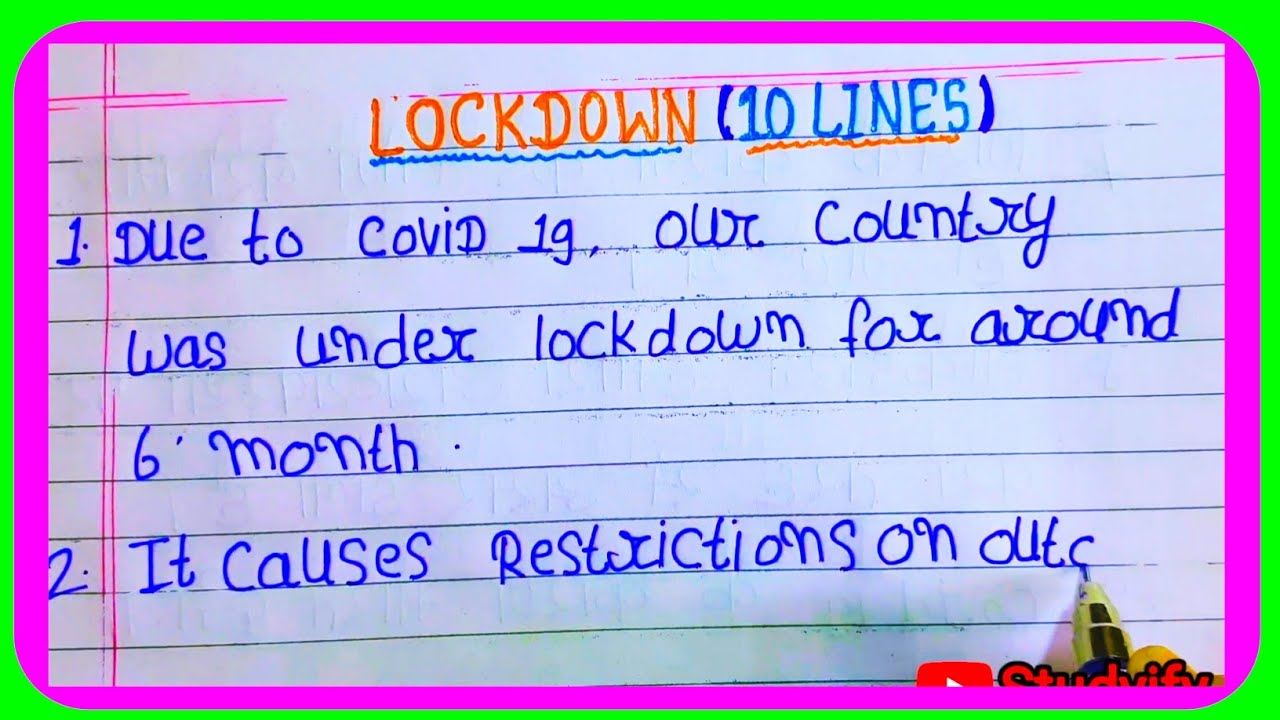 LOCKDOWN (10 LINES)
1. Due to COVID 19, our country
was under lockdown for around
6 month.
2. It causes Restrictions on
Studyify